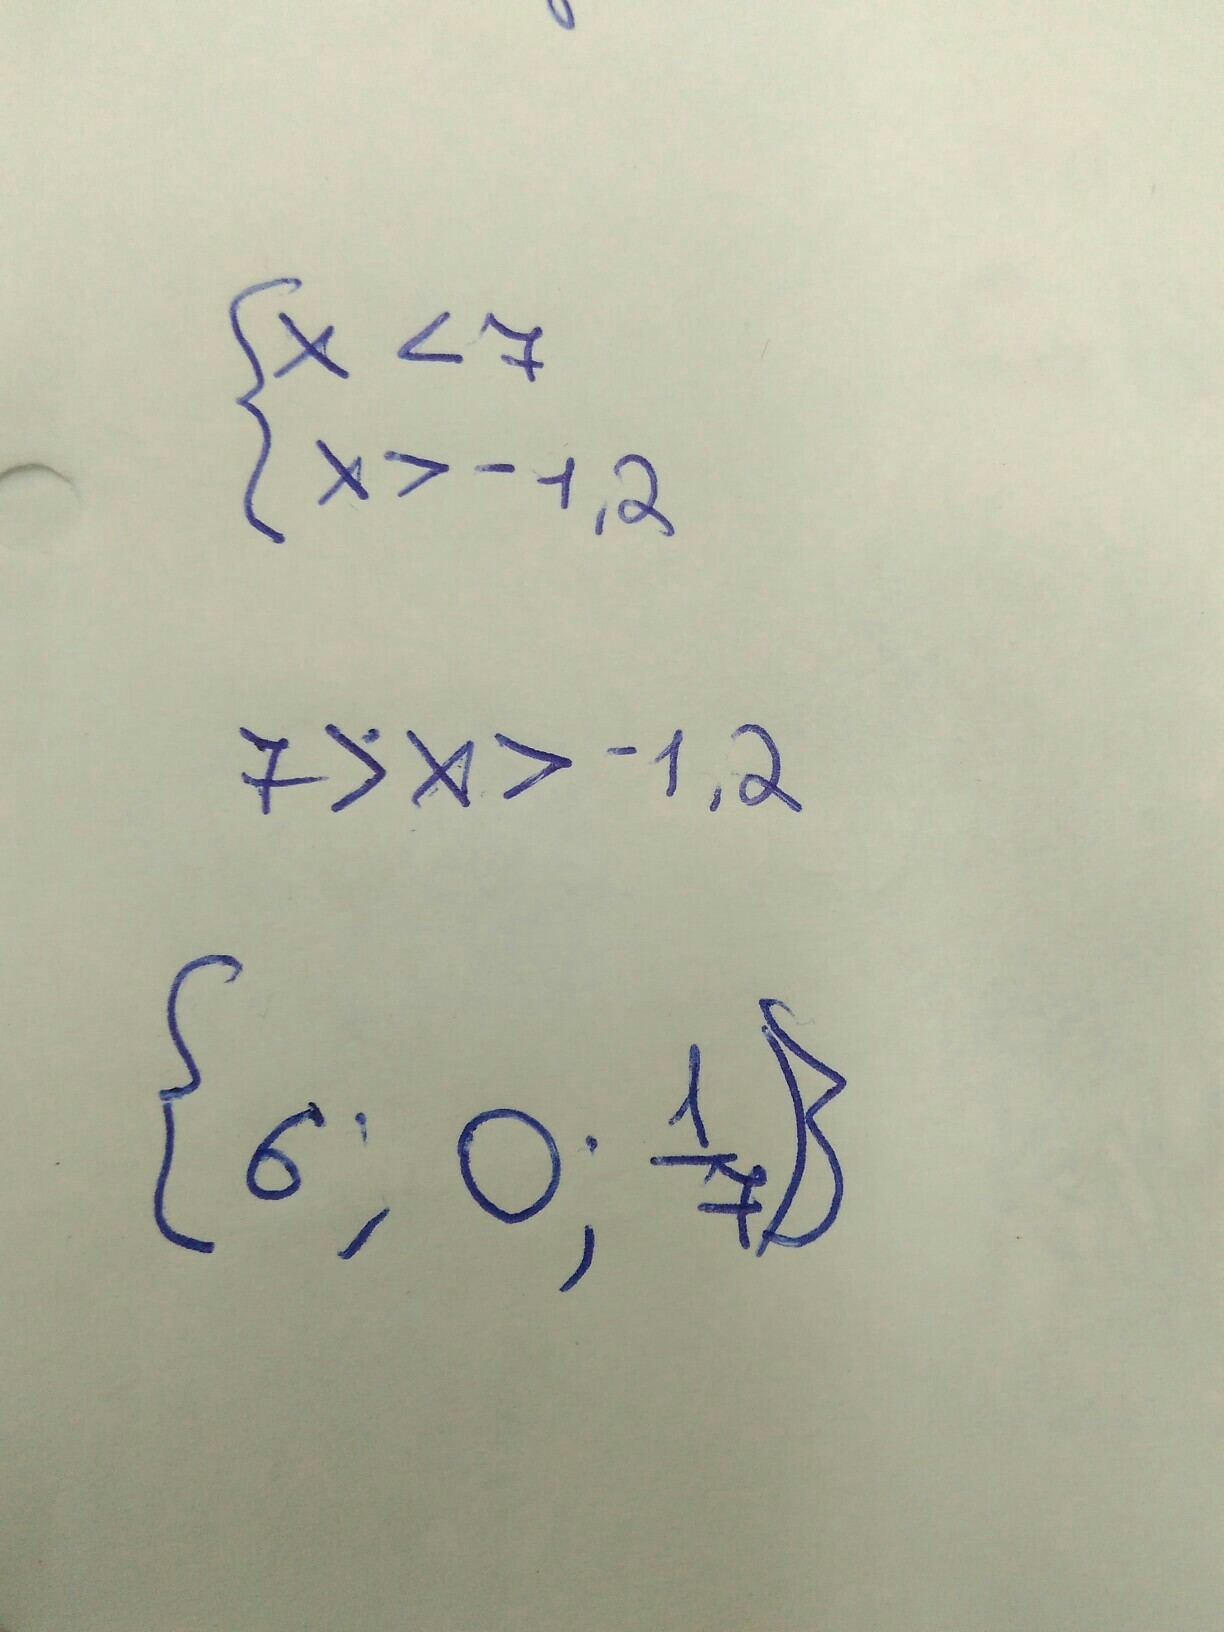 {x < 7
{x > -1,2
7 > x > -1,2
{6; 0; 1/7}